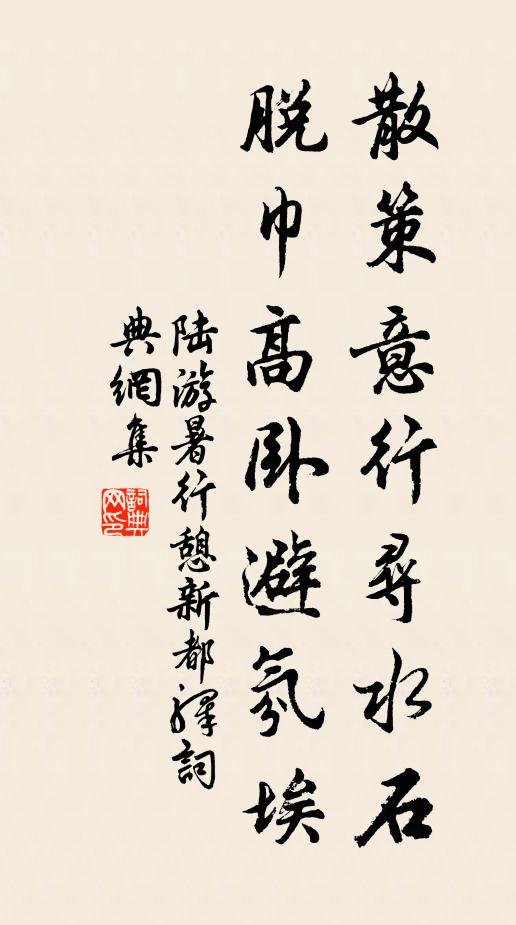 散策意行尋水石
脫巾高卧避氛埃
陆游暑行憩新都驛詞
典網集
詞典网印